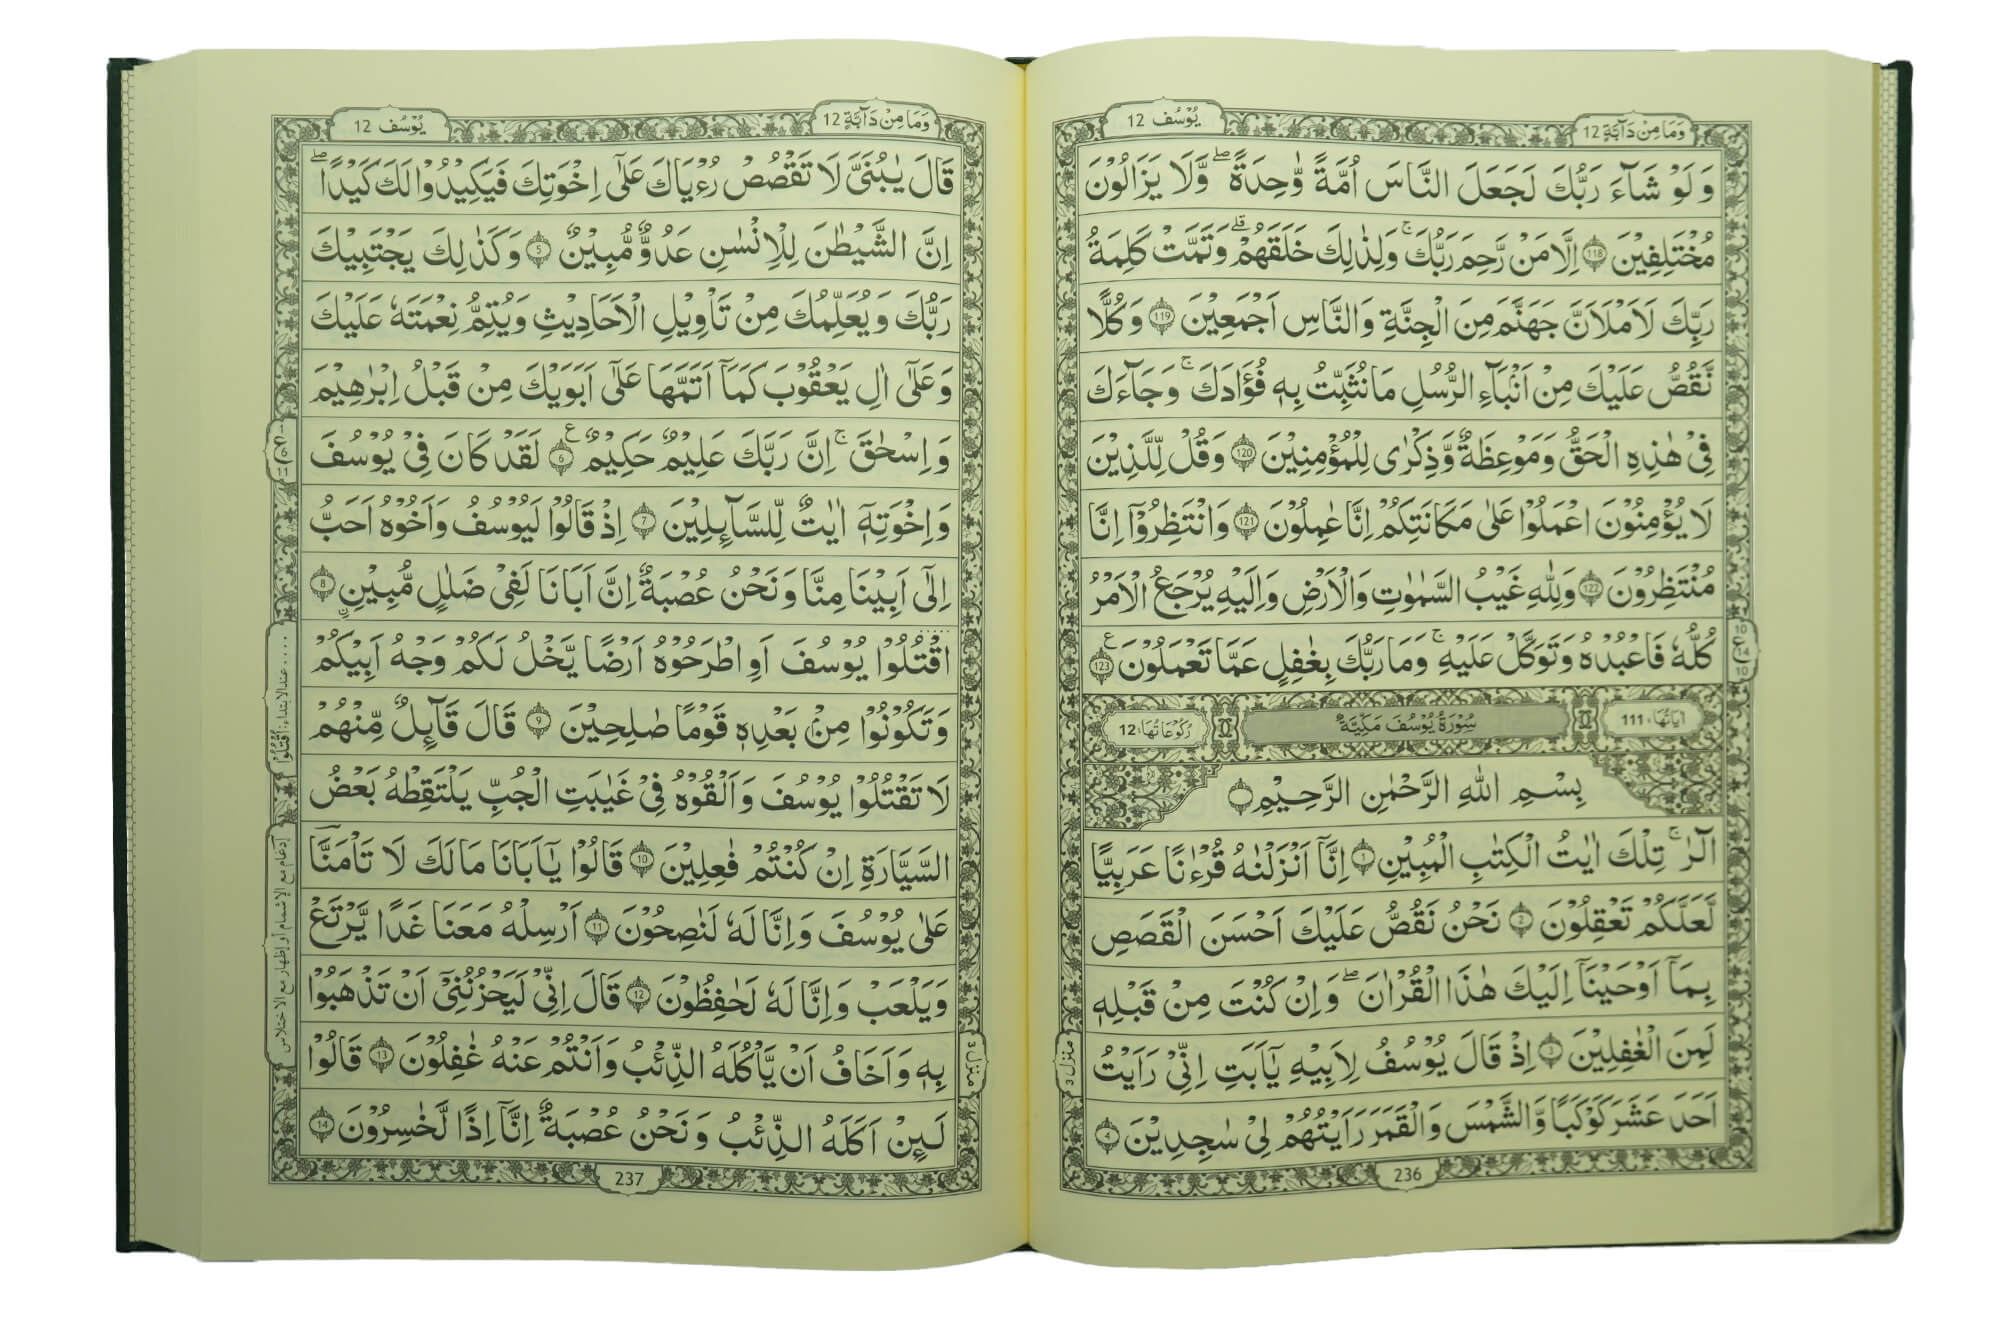 وَمَا مِنْ دَآبَّةٍ 12
يُوْسُف 12
وَلَوْ شَآءَ رَبُّكَ لَجَعَلَ النَّاسَ اُمَّةً وَّاحِدَةً ۖ وَّلَا يَزَالُوْنَ
مُخْتَلِفِيْنَ 118 اِلَّا مَنْ رَّحِمَ رَبُّكَ ۚ وَلِذٰلِكَ خَلَقَهُمْ ۗ وَتَمَّتْ كَلِمَةُ
رَبِّكَ لَاَمْلَاَنَّ جَهَنَّمَ مِنَ الْجِنَّةِ وَالنَّاسِ اَجْمَعِيْنَ 119 وَكُلًّا
نَّقُصُّ عَلَيْكَ مِنْ اَنْۢبَآءِ الرُّسُلِ مَا نُثَبِّتُ بِهٖ فُؤَادَكَ ۚ وَجَآءَكَ
فِيْ هٰذِهِ الْحَقُّ وَمَوْعِظَةٌ وَّذِكْرٰى لِلْمُؤْمِنِيْنَ 120 وَقُلْ لِّلَّذِيْنَ
لَا يُؤْمِنُوْنَ اعْمَلُوْا عَلٰى مَكَانَتِكُمْ اِنَّا عٰمِلُوْنَ 121 وَانْتَظِرُوْٓا اِنَّا
مُنْتَظِرُوْنَ 122 وَلِلّٰهِ غَيْبُ السَّمٰوٰتِ وَالْاَرْضِ وَاِلَيْهِ يُرْجَعُ الْاَمْرُ
كُلُّهٗ فَاعْبُدْهُ وَتَوَكَّلْ عَلَيْهِ ۚ وَمَا رَبُّكَ بِغٰفِلٍ عَمَّا تَعْمَلُوْنَ 123
اٰيَاتُهَا 111
سُوْرَةُ يُوْسُفَ مَكِيَّةٌ
رُكُوْعَاتُهَا 12
بِسْمِ اللّٰهِ الرَّحْمٰنِ الرَّحِيْمِ
الٓرٰ ۚ تِلْكَ اٰيٰتُ الْكِتٰبِ الْمُبِيْنِ 1 اِنَّآ اَنْزَلْنٰهُ قُرْءٰنًا عَرَبِيًّا
لَّعَلَّكُمْ تَعْقِلُوْنَ 2 نَحْنُ نَقُصُّ عَلَيْكَ اَحْسَنَ الْقَصَصِ
بِمَآ اَوْحَيْنَآ اِلَيْكَ هٰذَا الْقُرْاٰنَ ۖ وَاِنْ كُنْتَ مِنْ قَبْلِهٖ
لَمِنَ الْغٰفِلِيْنَ 3 اِذْ قَالَ يُوْسُفُ لِاَبِيْهِ يٰٓاَبَتِ اِنِّيْ رَاَيْتُ
اَحَدَ عَشَرَ كَوْكَبًا وَّالشَّمْسَ وَالْقَمَرَ رَاَيْتُهُمْ لِيْ سٰجِدِيْنَ 4
منزل ٣
236
وَمَا مِنْ دَآبَّةٍ 12
يُوْسُف 12
قَالَ يٰبُنَيَّ لَا تَقْصُصْ رُءْيَاكَ عَلٰٓى اِخْوَتِكَ فَيَكِيْدُوْا لَكَ كَيْدًا ۖ
اِنَّ الشَّيْطٰنَ لِلْاِنْسٰنِ عَدُوٌّ مُّبِيْنٌ 5 وَكَذٰلِكَ يَجْتَبِيْكَ
رَبُّكَ وَيُعَلِّمُكَ مِنْ تَاْوِيْلِ الْاَحَادِيْثِ وَيُتِمُّ نِعْمَتَهٗ عَلَيْكَ
وَعَلٰٓى اٰلِ يَعْقُوْبَ كَمَآ اَتَمَّهَا عَلٰٓى اَبَوَيْكَ مِنْ قَبْلُ اِبْرٰهِيْمَ
وَاِسْحٰقَ ۚ اِنَّ رَبَّكَ عَلِيْمٌ حَكِيْمٌ 6 لَقَدْ كَانَ فِيْ يُوْسُفَ
وَاِخْوَتِهٖٓ اٰيٰتٌ لِّلسَّآئِلِيْنَ 7 اِذْ قَالُوْا لَيُوْسُفُ وَاَخُوْهُ اَحَبُّ
اِلٰٓى اَبِيْنَا مِنَّا وَنَحْنُ عُصْبَةٌ اِنَّ اَبَانَا لَفِيْ ضَلٰلٍ مُّبِيْنِ 8
اقْتُلُوْا يُوْسُفَ اَوِ اطْرَحُوْهُ اَرْضًا يَّخْلُ لَكُمْ وَجْهُ اَبِيْكُمْ
وَتَكُوْنُوْا مِنْۢ بَعْدِهٖ قَوْمًا صٰلِحِيْنَ 9 قَالَ قَآئِلٌ مِّنْهُمْ
لَا تَقْتُلُوْا يُوْسُفَ وَاَلْقُوْهُ فِيْ غَيٰبَتِ الْجُبِّ يَلْتَقِطْهُ بَعْضُ
السَّيَّارَةِ اِنْ كُنْتُمْ فٰعِلِيْنَ 10 قَالُوْا يٰٓاَبَانَا مَا لَكَ لَا تَاْمَنَّا
عَلٰى يُوْسُفَ وَاِنَّا لَهٗ لَنٰصِحُوْنَ 11 اَرْسِلْهُ مَعَنَا غَدًا يَّرْتَعْ
وَيَلْعَبْ وَاِنَّا لَهٗ لَحٰفِظُوْنَ 12 قَالَ اِنِّيْ لَيَحْزُنُنِيْٓ اَنْ تَذْهَبُوْا
بِهٖ وَاَخَافُ اَنْ يَّاْكُلَهُ الذِّئْبُ وَاَنْتُمْ عَنْهُ غٰفِلُوْنَ 13 قَالُوْا
لَئِنْ اَكَلَهُ الذِّئْبُ وَنَحْنُ عُصْبَةٌ اِنَّآ اِذًا لَّخٰسِرُوْنَ 14
عند الابتداء: اُقْتُلُوْا
إدغام مع الإشمام أو إظهار مع الاختلاس
منزل ٣
237